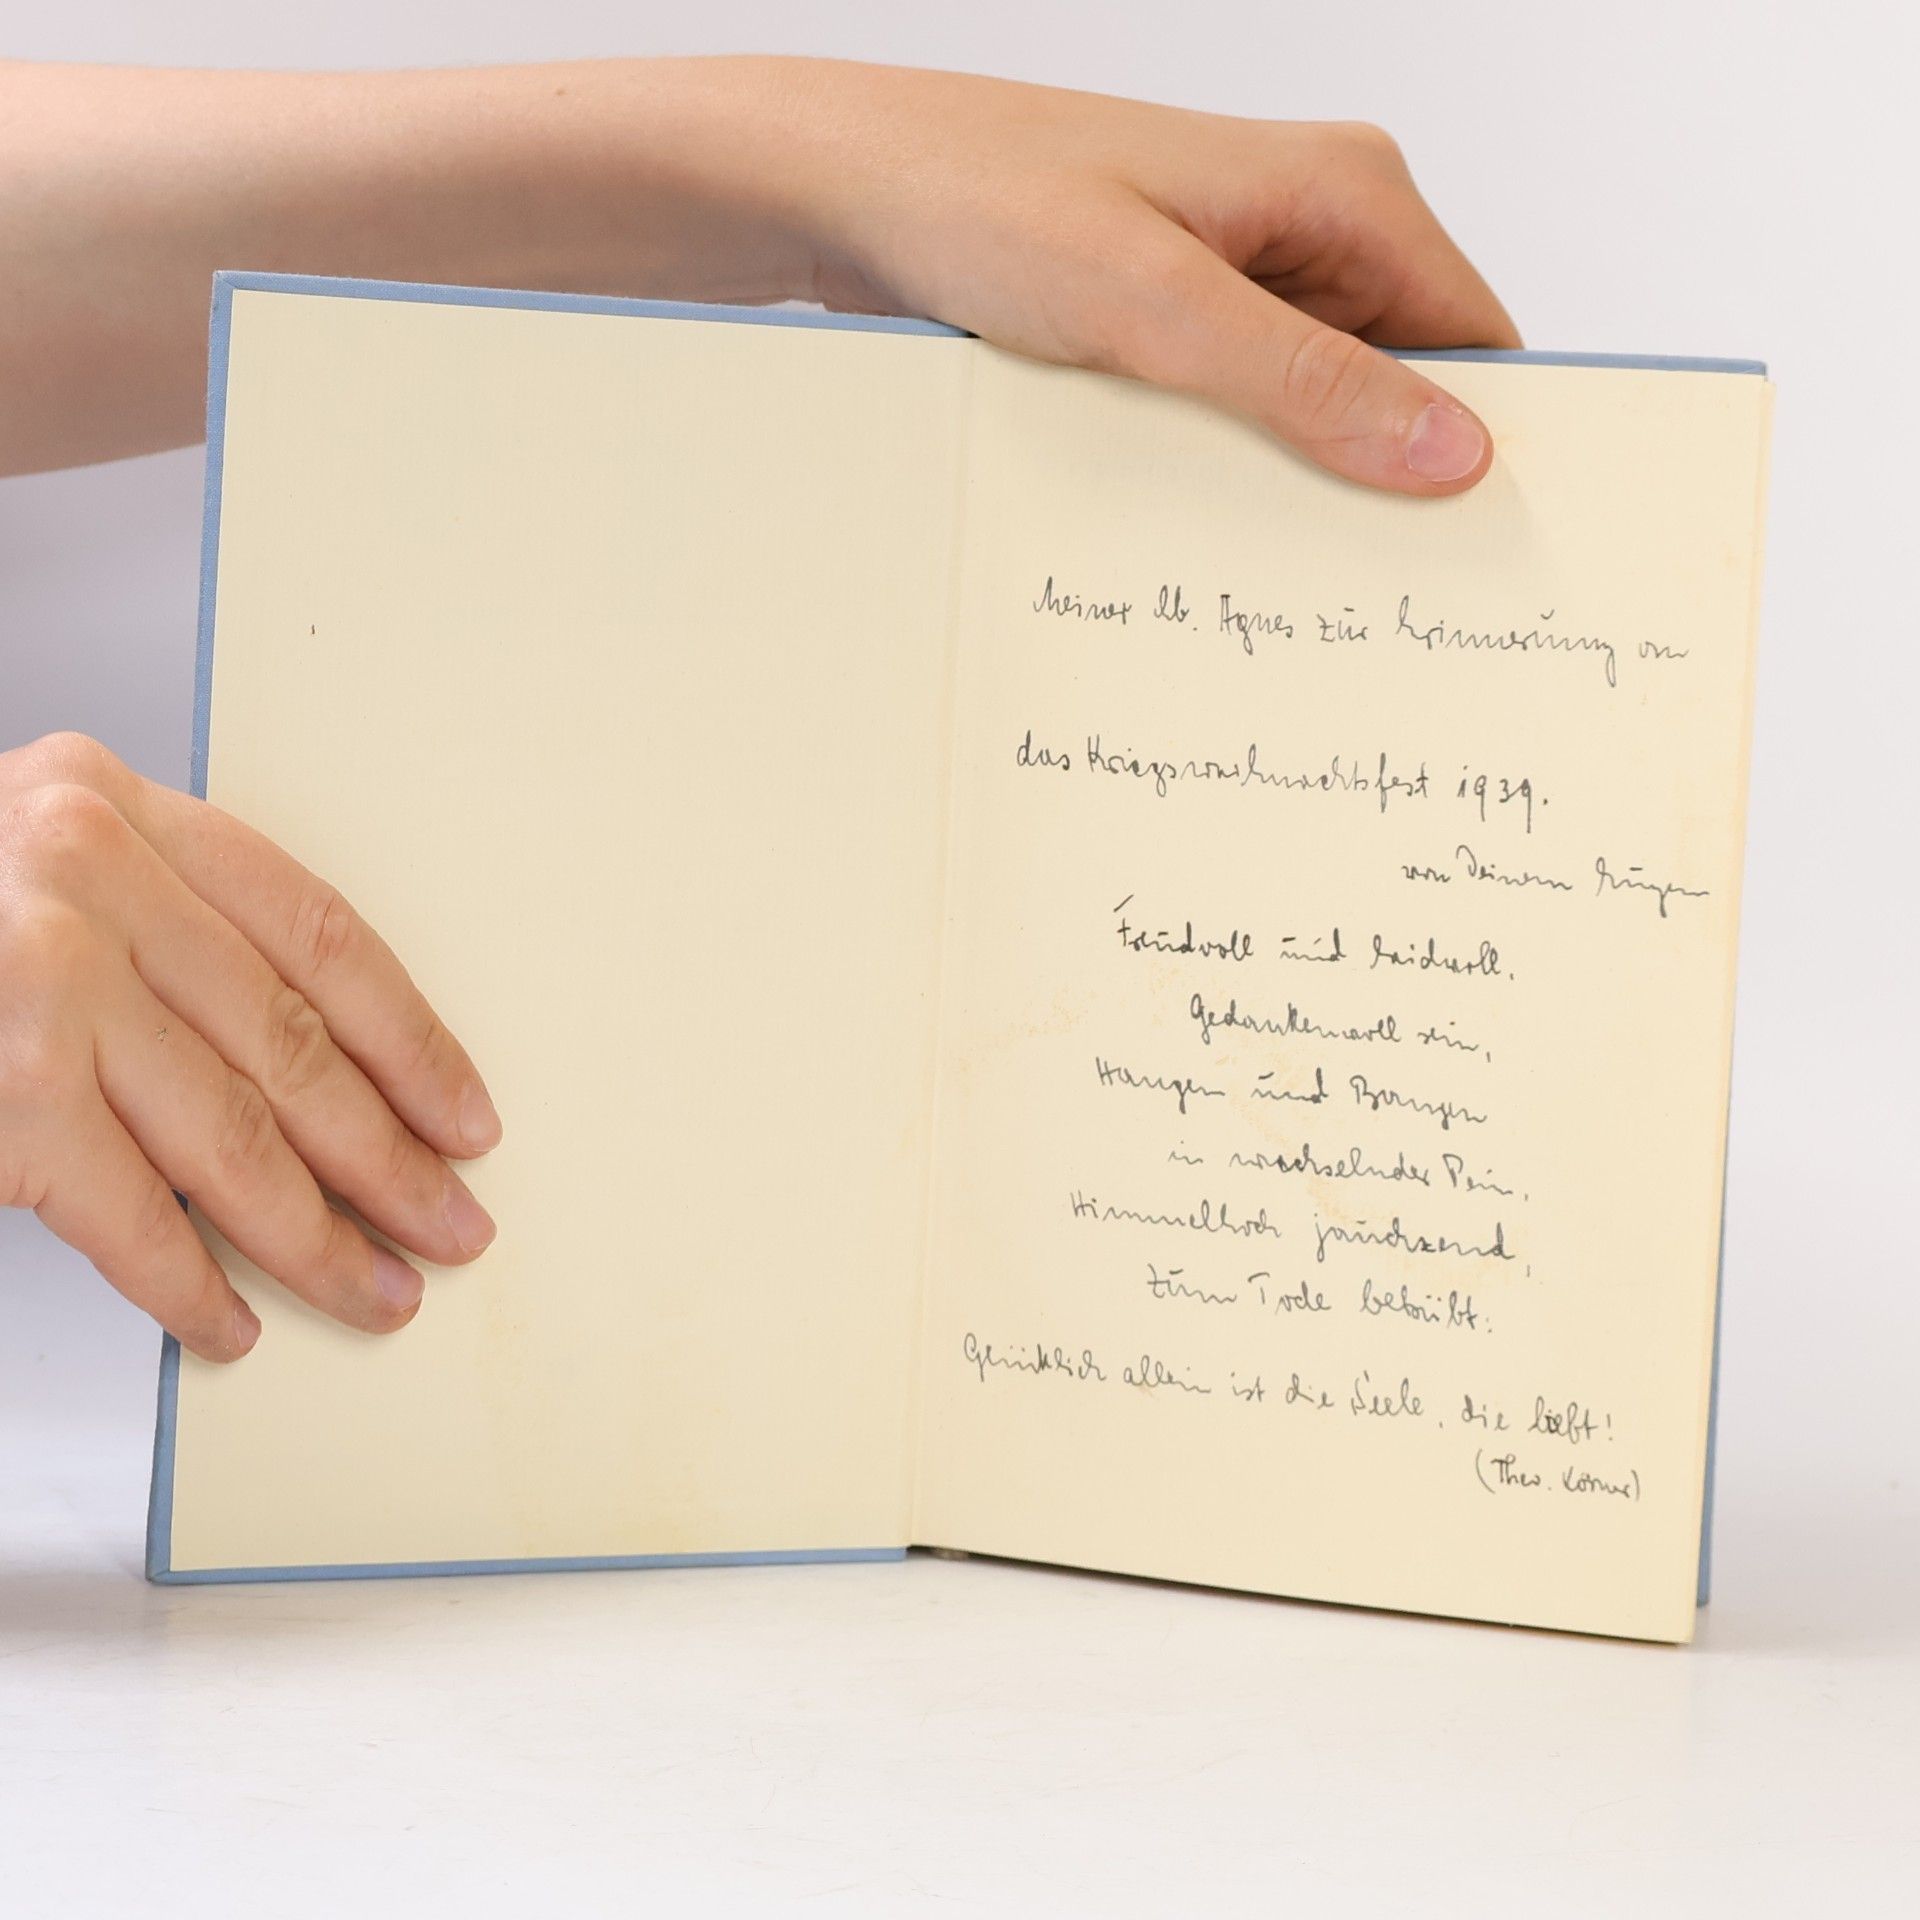 Meiner lb. Agnes zur Erinnerung an
das Kriegsweihnachtsfest 1939.
von Deinem Eugen
Freudvoll und leidvoll,
Gedankenvoll sein,
Hangen und Bangen
in wechselnder Pein,
Himmelhoch jauchzend,
zum Tode betrübt:
Glücklich allein ist die Seele, die liebt!
(Theo. Körner)